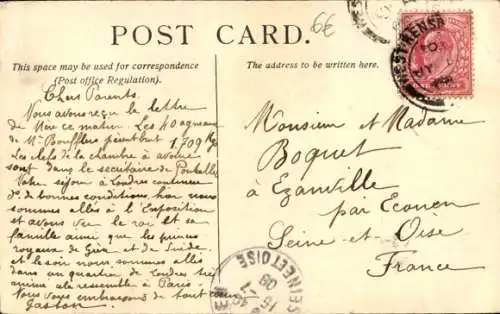 POST CARD.
6€
This space may be used for correspondence
(Post office Regulation).
The address to be written here.
Chers Parents.
Nous avons reçu la lettre
de ce matin. Les 40 agneaux
de Mr Boufflers 1.709 Kgs
Les clefs de la chambre à avoine
sont dans le secrétaire de
Votre séjour à Londres continue
de bonnes conditions, hier nous
sommes allés à l'Exposition
et avons vu le roi et sa
famille ainsi que les princes
royaux de et de Suède
et le soir nous sommes allés
dans un quartier de Londres très
animé cela ressemble à Paris.
Nous vous embrassons de tout cœur
Gaston
Monsieur et Madame
Boquet
à Ezanville
par Ecouen
Seine-et-Oise
France